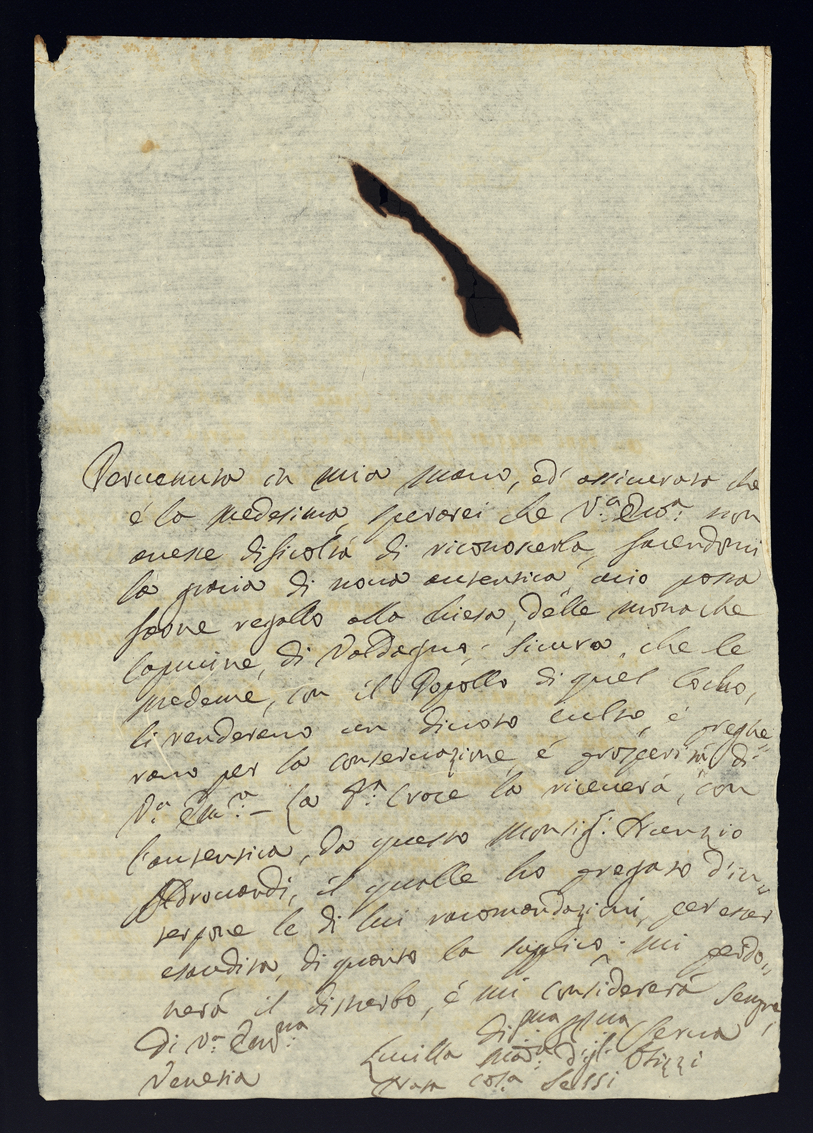 Peruenuta in mia mano, ed' assicurata che
é la medesima, sperarei che V.ª Em.ª non
auese dificoltá di riconoscerla, facendomi
la gracia di noua autentica, acio possa
farne regallo alla chiesa, delle monache
Capucine, di Valdagno; sicura, che le
medeme, con il Popollo di quel locho,
li renderano un diuoto culto, é preghe„
rano per la conseruazione, é prosperitá di
V.ª Em.ª – La S.ª Croce la riceuerá, con
l'autentica, da questo Monsig.r
il qualle ho pregato d'in„
terpore le di lui racomandazioni, per esser
esaudita, di quanto la suplico. mi perdo„
nerá il disturbo, é mi considererá sempre
di V.ª Em.na
Venezia
Lucilla
nata Sessi